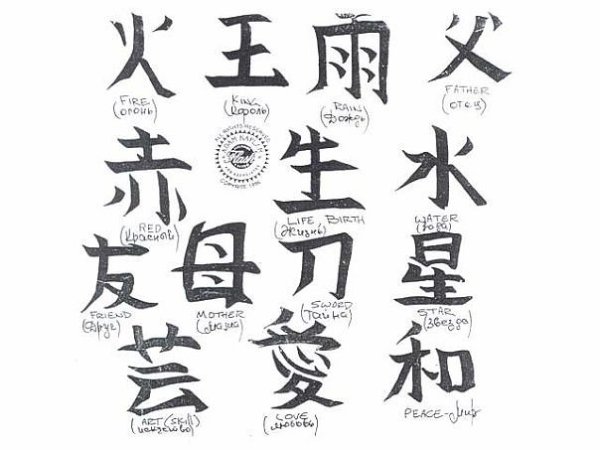 火 王 雨 父
FIRE KING RAIN FATHER
(огонь) (король) (Дождь) (отец)
赤 生 水
RED LIFE, BIRTH WATER
(красный) (Жизнь) (вода)
友 母 刀 星
FRIEND MOTHER SWORD STAR
(Друг) (мама) (Тайна) (звезда)
芸 愛 和
ART (SKILL) LOVE PEACE - мир
(искуство) (любовь)